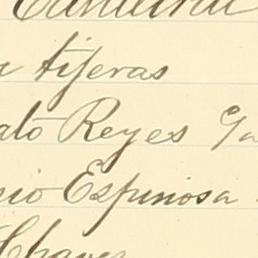 a tijeras
ato Reyes Ga
nio Espinosa
Chaves